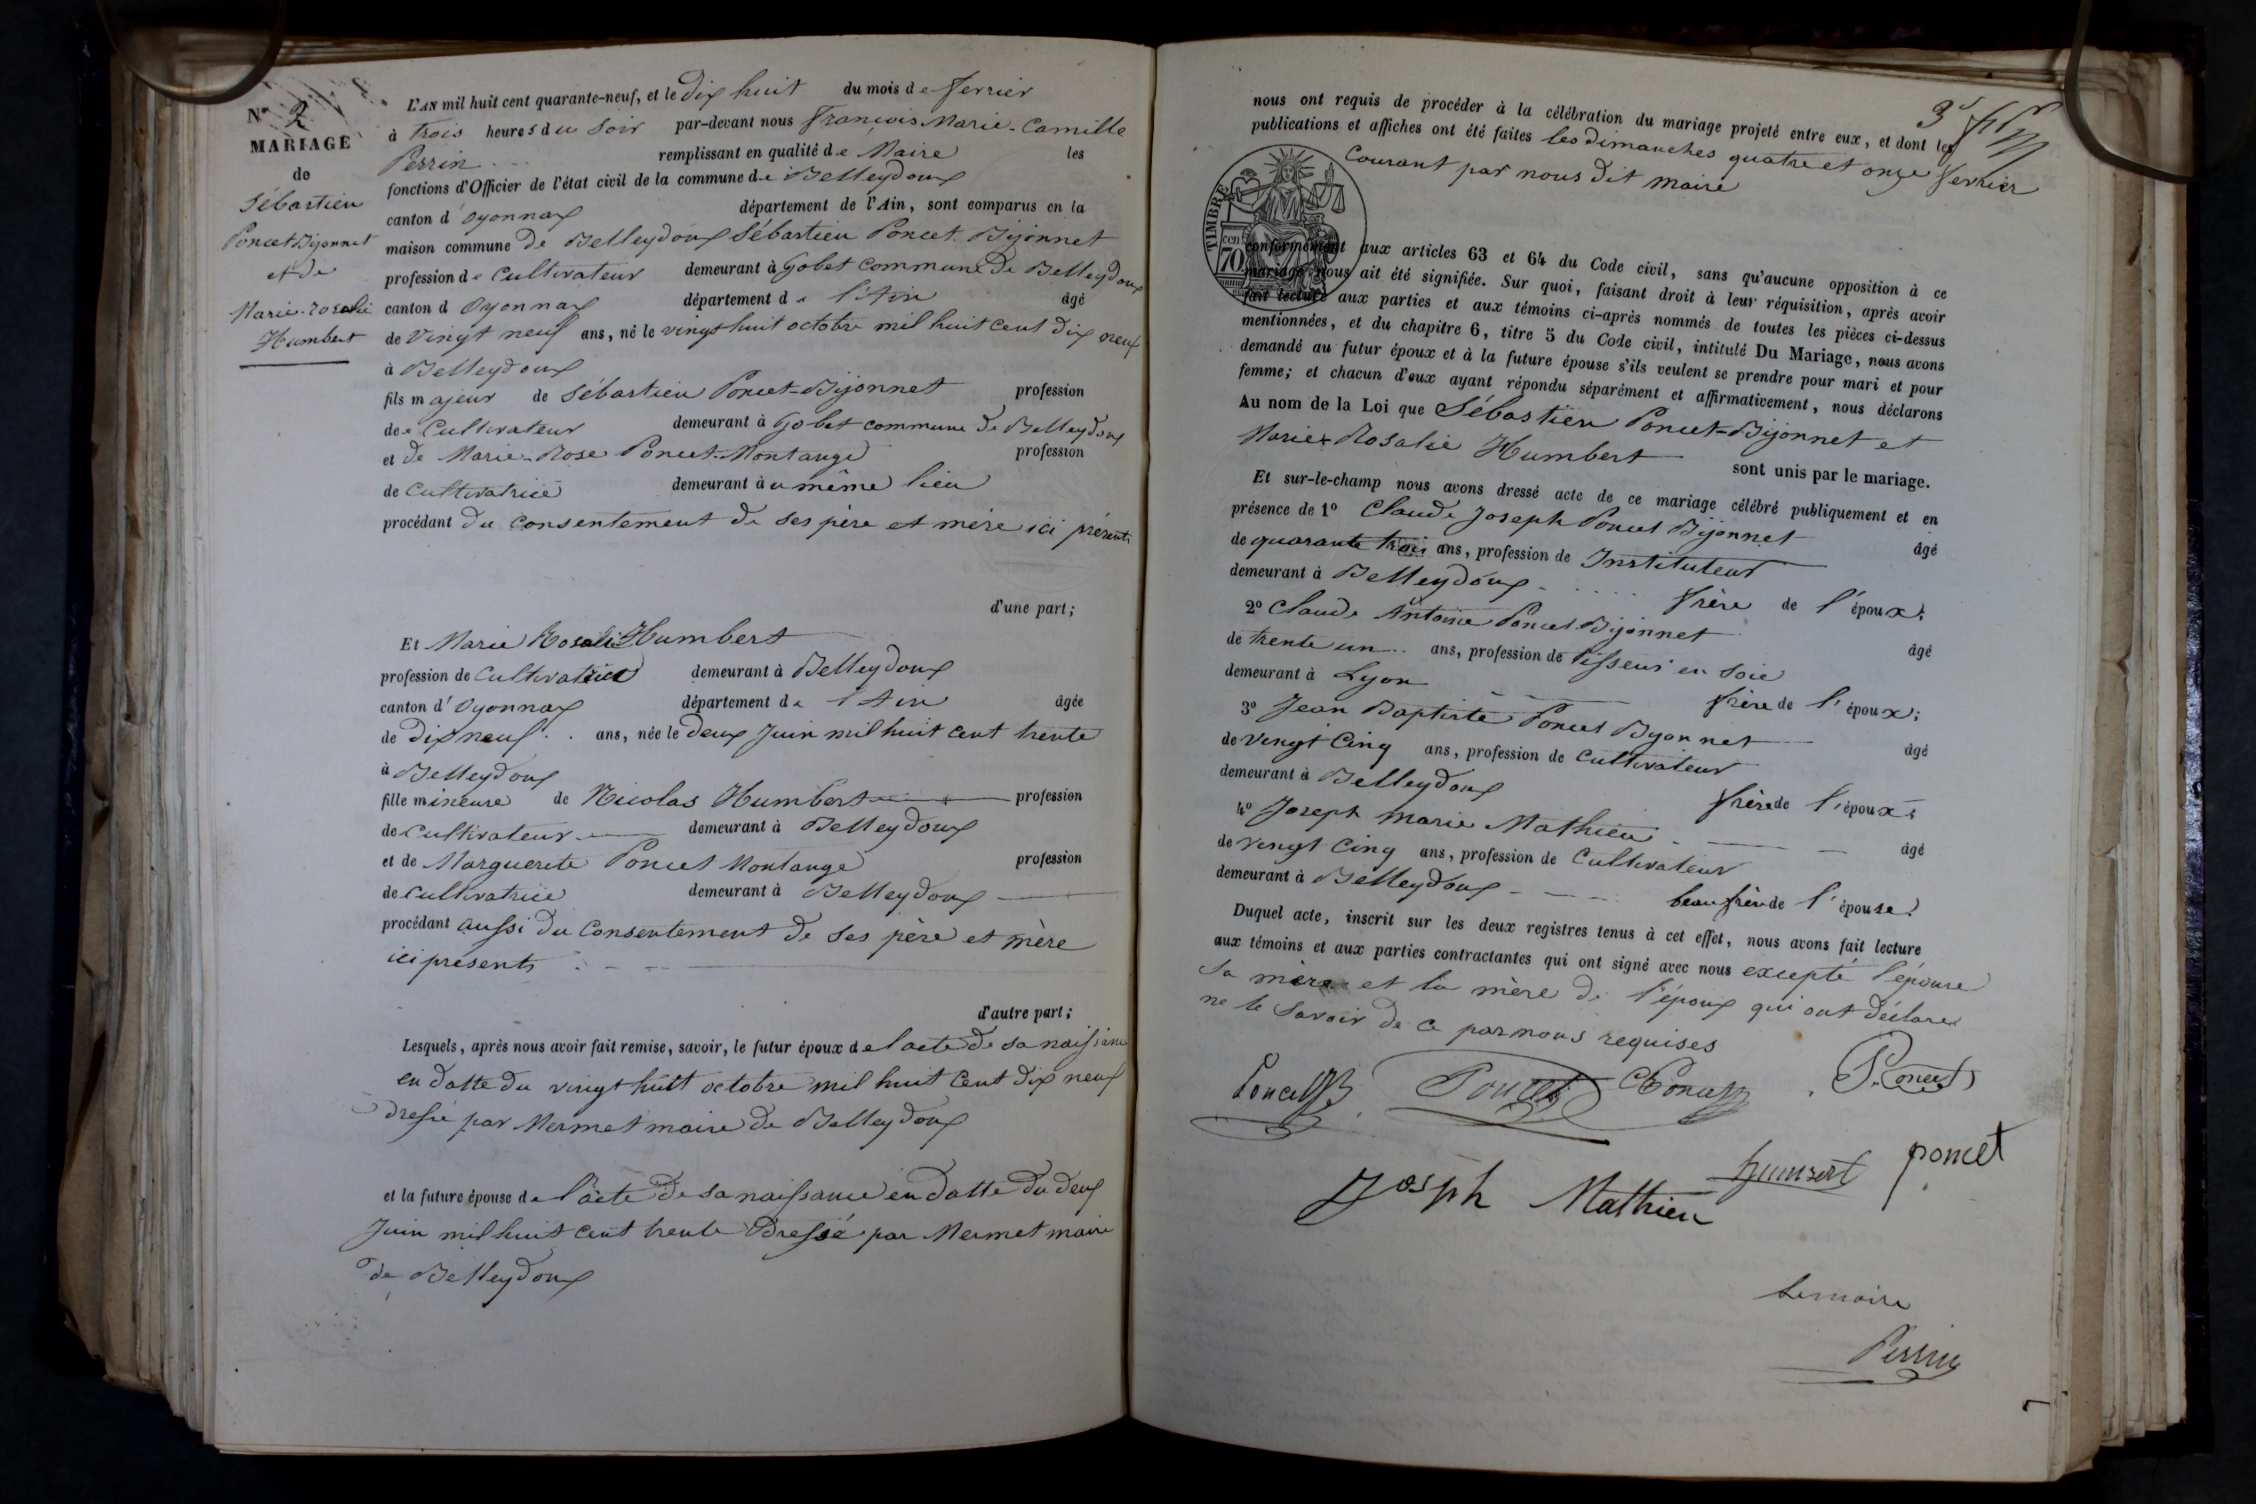 N° 2
MARIAGE
de
Sébastien
Poncet Bijonnet
et de
Marie-rosalie
Humbert
L'AN mil huit cent quarante-neuf, et le dix huit du mois de fevrier
à trois heures du Soir par-devant nous François Marie-Camille
Perrin remplissant en qualité de Maire les
fonctions d'Officier de l'état civil de la commune de Belleydoux
canton d'Oyonnax département de l'Ain, sont comparus en la
maison commune de Belleydoux Sébastien Poncet-Bijonnet
profession de Cultivateur demeurant à Gobet commune de Belleydoux
canton d Oyonnax département de l'Ain âgé
de Vingt neuf ans, né le vingt huit octobre mil huit cent dix neuf
à Belleydoux
fils majeur de Sébastien Poncet-Bijonnet profession
de Cultivateur demeurant à Gobet commune de Belleydoux
et de Marie-Rose Poncet-Montange profession
de Cultivatrice demeurant au même lieu
procédant du consentement de ses père et mère ici présents
d'une part;
Et Marie Rosalie Humbert
profession de Cultivatrice demeurant à Belleydoux
canton d'Oyonnax département de l'Ain âgée
de dix neuf ans, née le deux Juin mil huit cent trente
à Belleydoux
fille mineure de Nicolas Humbert profession
de Cultivateur demeurant à Belleydoux
et de Marguerite Poncet Montange profession
de Cultivatrice demeurant à Belleydoux
procédant aussi du Consentement de ses père et mère
ici présents
d'autre part;
Lesquels, après nous avoir fait remise, savoir, le futur époux de l'acte de sa naissance
en datte du vingt huit octobre mil huit cent dix neuf
dressé par Mermet maire de Belleydoux
et la future épouse de l'acte de sa naissance en datte du deux
Juin mil huit cent trente Dressé par Mermet maire
de Belleydoux
3
nous ont requis de procéder à la célébration du mariage projeté entre eux, et dont les
publications et affiches ont été faites les dimanches quatre et onze fevrier
Courant par nous dit maire
TIMBRE
cen
70
conformément aux articles 63 et 64 du Code civil, sans qu'aucune opposition à ce
mariage nous ait été signifiée. Sur quoi, faisant droit à leur réquisition, après avoir
fait lecture aux parties et aux témoins ci-après nommés de toutes les pièces ci-dessus
mentionnées, et du chapitre 6, titre 5 du Code civil, intitulé Du Mariage, nous avons
demandé au futur époux et à la future épouse s'ils veulent se prendre pour mari et pour
femme; et chacun d'eux ayant répondu séparément et affirmativement, nous déclarons
Au nom de la Loi que Sébastien Poncet-Bijonnet et
Marie-Rosalie Humbert sont unis par le mariage.
Et sur-le-champ nous avons dressé acte de ce mariage célébré publiquement et en
présence de 1° Claude Joseph Poncet Bijonnet âgé
de quarante trois ans, profession de Instituteur
demeurant à Belleydoux frère de l'époux;
2° Claude Antoine Poncet Bijonnet âgé
de trente un ans, profession de tisseur en soie
demeurant à Lyon frère de l'époux;
3° Jean Baptiste Poncet Byonnet âgé
de vingt Cinq ans, profession de Cultivateur
demeurant à Belleydoux frère de l'époux;
4° Joseph Marie Mathieu âgé
de vingt Cinq ans, profession de Cultivateur
demeurant à Belleydoux beau frère de l'épouse.
Duquel acte, inscrit sur les deux registres tenus à cet effet, nous avons fait lecture
aux témoins et aux parties contractantes qui ont signé avec nous excepté l'épouse
sa mère et la mère de l'époux qui ont déclaré
ne le Savoir de ce par nous requises
Poncet Poncet Poncet P.oncet
humbert poncet
Joseph Mathieu
Le maire
Perrin